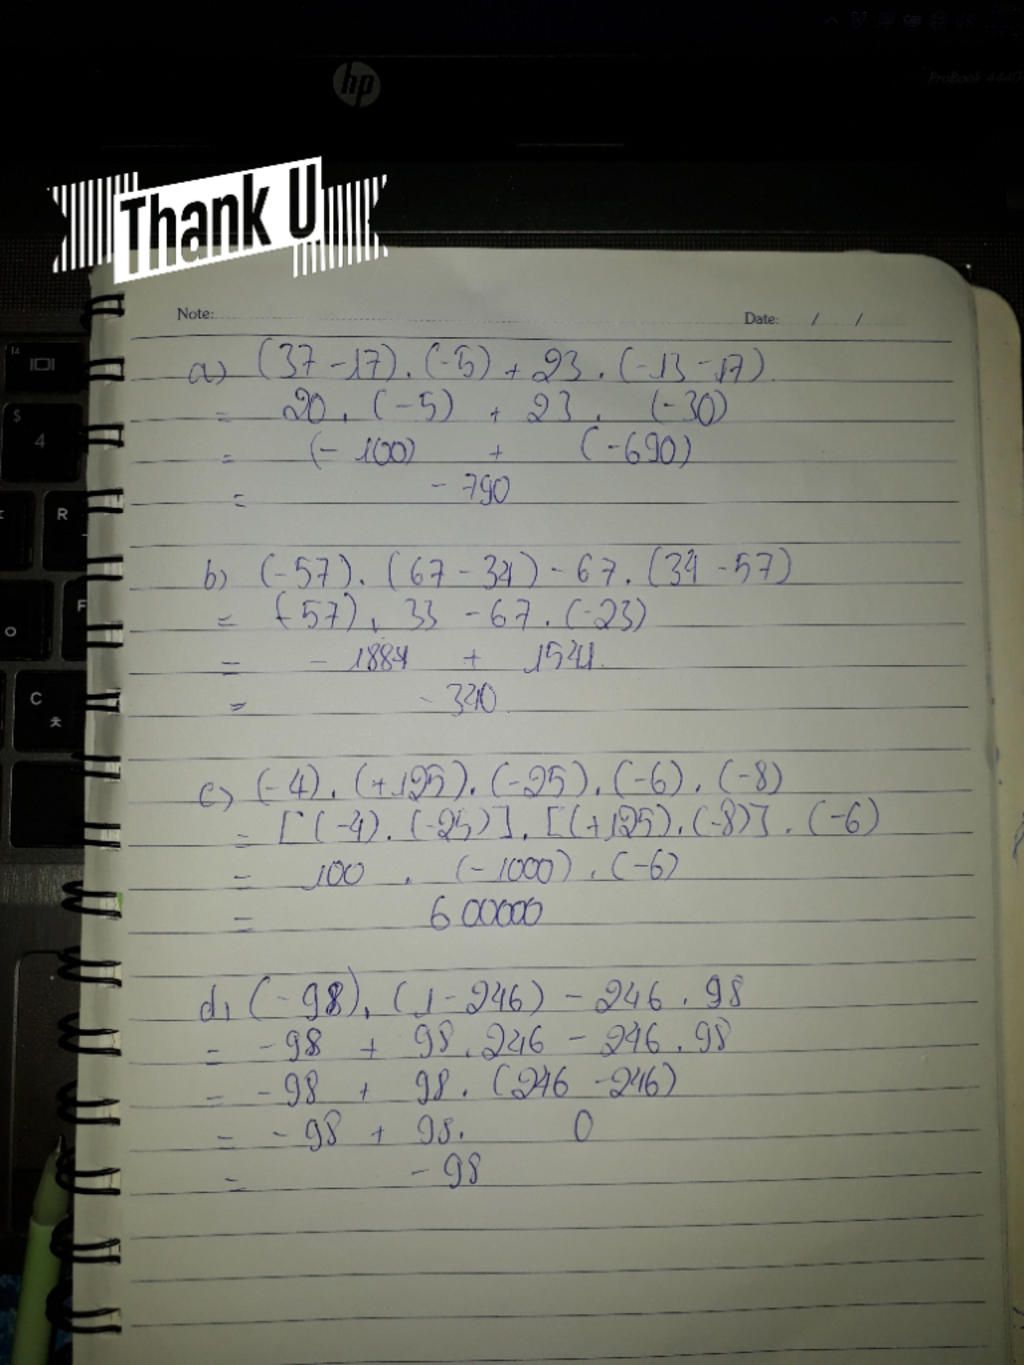 hp
ProBook 4440
Thank U
Note:
Date: / /
a) (37-17).(-5)+23.(-13-17)
= 20.(-5) + 23.(-30)
= (-100) + (-690)
= -790
b) (-57).(67-34)-67.(34-57)
= (-57).33-67.(-23)
= -1881 + 1541
= -340
c) (-4).(+125).(-25).(-6).(-8)
= [(-4).(-25)].[(+125).(-8)].(-6)
= 100.(-1000).(-6)
= 600000
d, (-98).(1-246)-246.98
= -98 + 98.246-246.98
= -98 + 98.(246-246)
= -98 + 98. 0
= -98
$
4
R
F
C